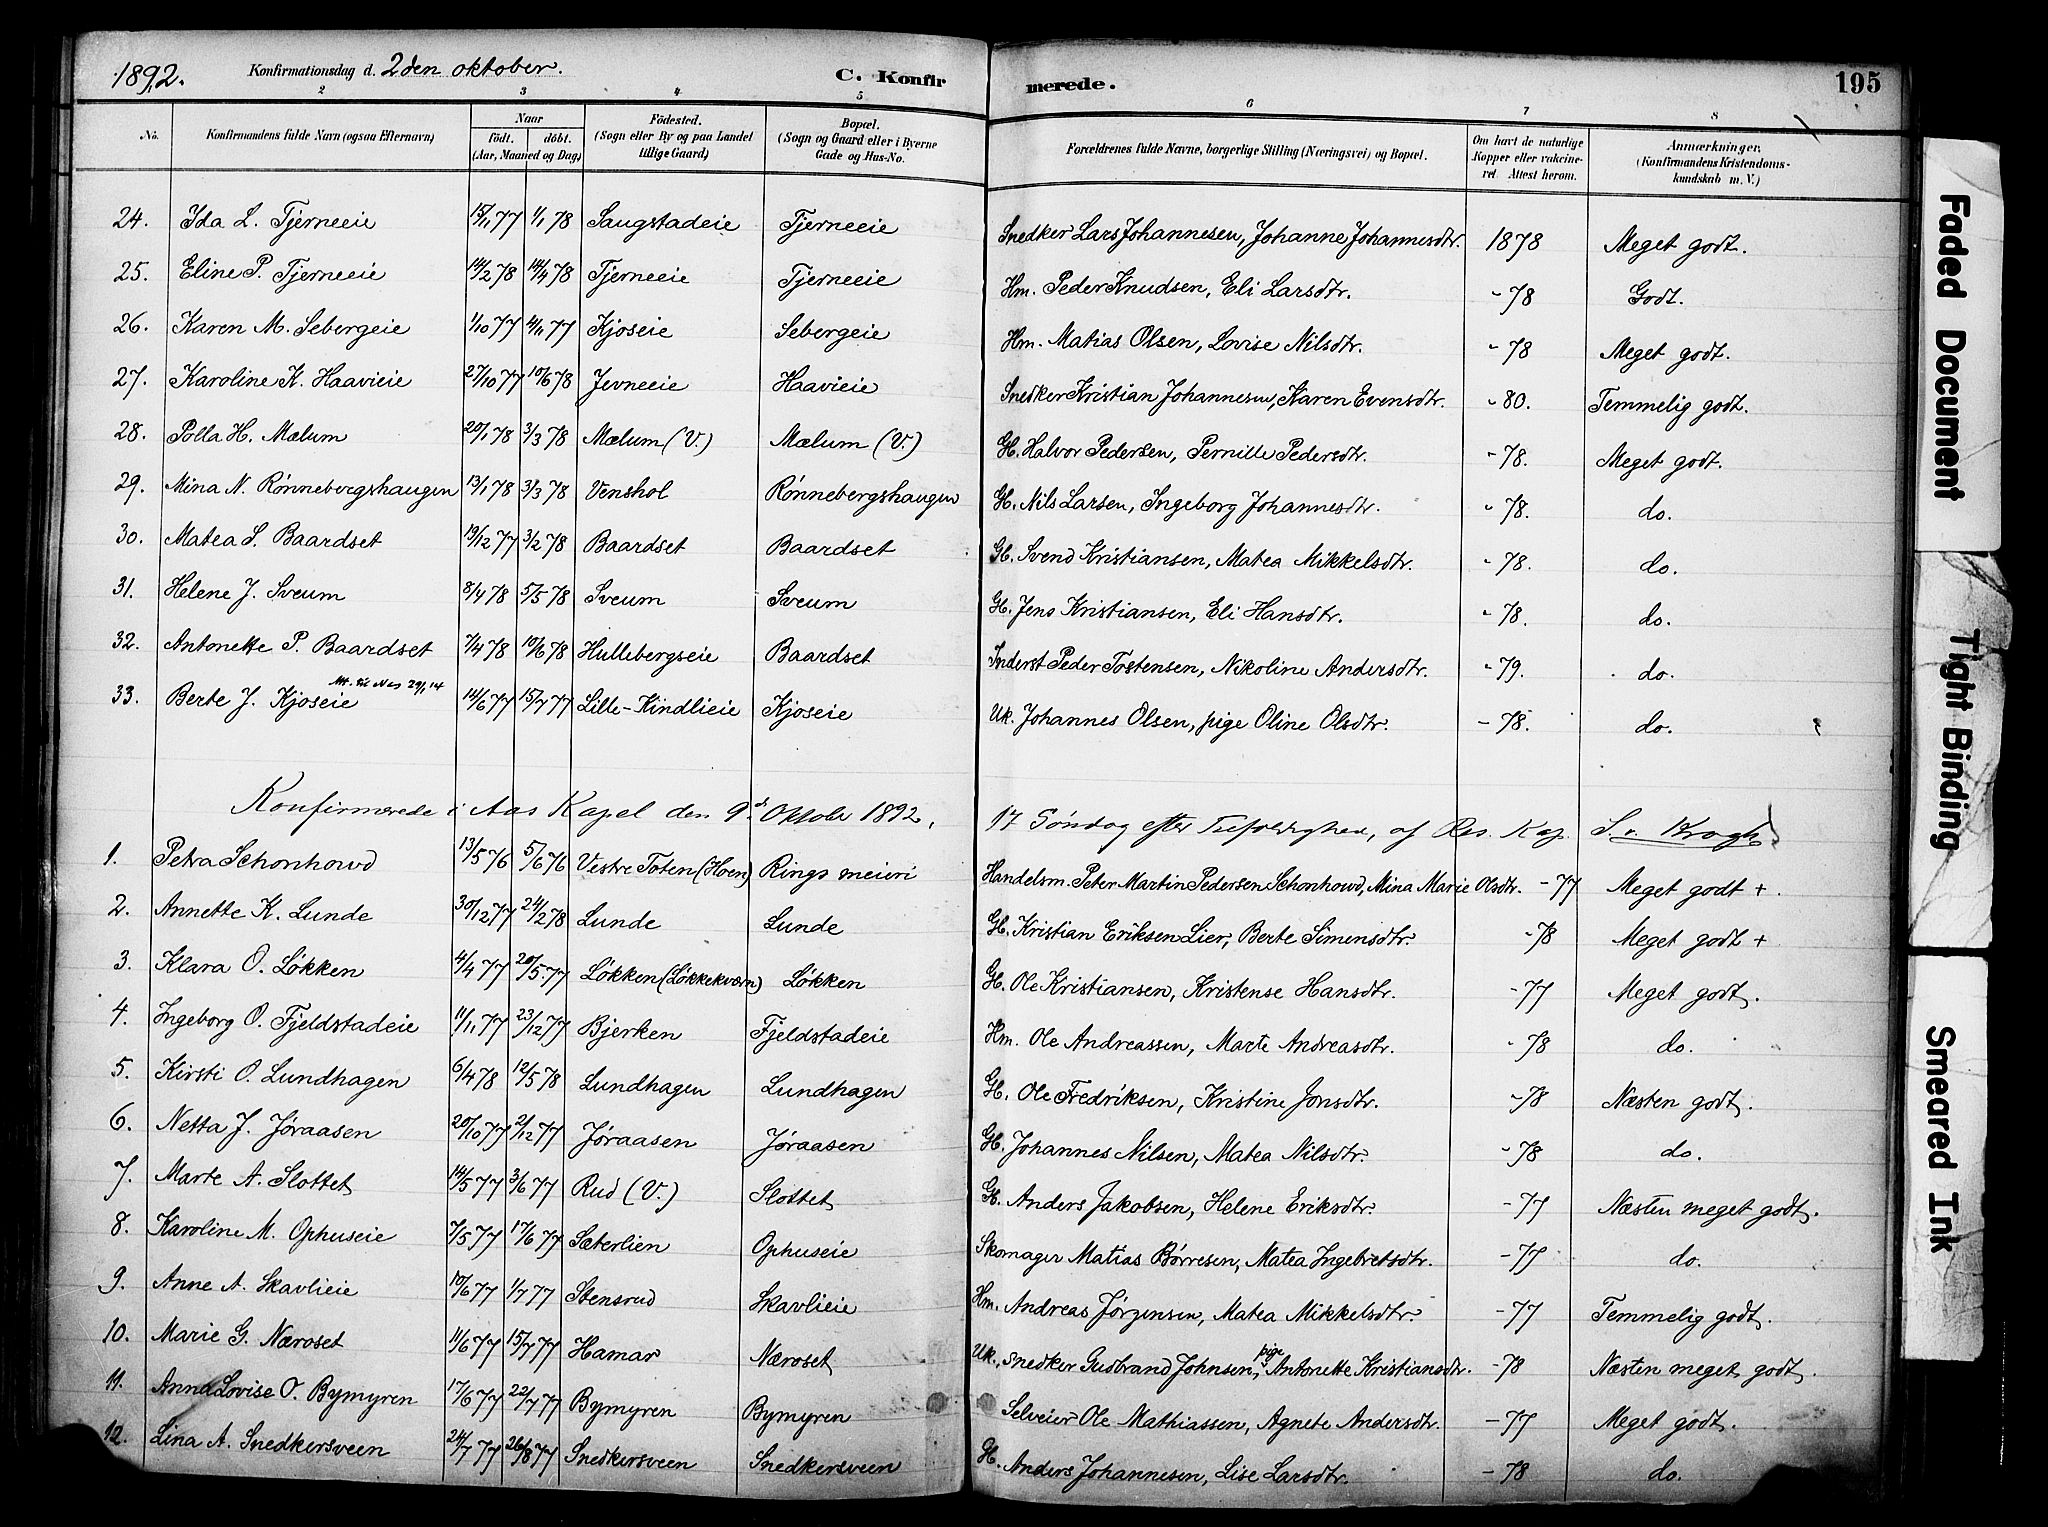 1892. Konfirmationsdag d. 2den oktober. C. Konfirmerede. 195
2 3 4 5 6 7 8
No. Konfirmandens fulde Navn (ogsaa Efternavn) Naar født. døbt. (Aar, Maaned og Dag) Fødested. (Sogn eller By og paa Landet tillige Gaard) Bopæl. (Sogn og Gaard eller i Byerne Gade og Hus-No. Forældrenes fulde Navne, borgerlige Stilling (Næringsvei) og Bopæl. Om havt de naturlige Kopper eller vakcineret. Attest herom. Anmærkninger. (Konfirmandens Kristendomskundskab m. V.)
24. Ida L. Tjerneeie 15/11 77 1/1 78 Saugstadeie Tjerneeie Snedker Lars Johannesen, Johanne Johannesdtr. 1878 Meget godt.
25. Eline P. Tjerneeie 14/2 78 14/4 78 Tjerneeie Tjerneeie Hm. Peder Knudsen, Eli Larsdtr. - 78 Godt.
26. Karen M. Sebergeie 1/10 77 4/11 77 Kjoseie Sebergeie Hm. Matias Olsen, Lovise Nilsdtr. - 78 Meget godt.
27. Karoline K. Haavieie 27/10 77 10/6 78 Jevneeie Haavieie Snedker Kristian Johannesen, Karen Evensdtr. - 80. Temmelig godt.
28. Polla H. Mælum 20/1 78 3/3 78 Mælum (V.) Mælum (V.) Gb. Halvor Pedersen, Pernille Pedersdtr. - 78. Meget godt.
29. Mina N. Rønnebergshaugen 13/1 78 3/3 78 Venshol Rønnebergshaugen Gb. Nils Larsen, Ingeborg Johannesdtr. - 78. do.
30. Matea S. Baardset 19/12 77 3/2 78 Baardset Baardset Gb. Svend Kristiansen, Matea Mikkelsdtr. - 78. do.
31. Helene J. Sveum 8/4 78 5/5 78 Sveum Sveum Gb. Jens Kristiansen, Eli Hansdtr. - 78. do.
32. Antonette P. Baardset 7/4 78 10/6 78 Hullebergseie Baardset Inderst Peder Tostensen, Nikoline Andersdtr. - 79. do.
Att. til Nes 29/1 14
33. Berte J. Kjoseie 14/6 77 15/7 77 Lille-Kindlieie Kjoseie Uk. Johannes Olsen, pige Oline Olsdtr. - 78. do.
Konfirmerede i Aas Kapel den 9d. Oktobr 1892, 17 Søndag efter Trefoldighed, af Res. Kap. S. v. Krogh
1. Petra Schonhowd 13/5 76 5/6 76 Vestre Toten (Hoen) Rings meieri Handelsm. Peter Martin Pedersen Schonhowd, Mina Marie Olsdtr. - 77 Meget godt +
2. Annette K. Lunde 30/12 77 24/2 78 Lunde Lunde Gb. Kristian Eriksen Lier, Berte Simensdtr. - 78 Meget godt +
3. Klara O. Løkken 4/4 77 20/5 77 Løkken (Løkkekværn) Løkken Gb. Ole Kristiansen, Kristense Hansdtr. - 77 Meget godt.
4. Ingeborg O. Fjeldstadeie 11/11 77 23/12 77 Bjerken Fjeldstadeie Hm. Ole Andreassen, Marte Andreasdtr. - 78 do.
5. Kirsti O. Lundhagen 6/4 78 12/5 78 Lundhagen Lundhagen Gb. Ole Fredriksen, Kristine Jonsdtr. - 78 Næsten godt.
6. Netta J. Jøraasen 20/10 77 2/12 77 Jøraasen Jøraasen Gb. Johannes Nilsen, Matea Nilsdtr. - 78 do.
7. Marte A. Slottet 14/5 77 3/6 77 Rud (V.) Slottet Gb. Anders Jakobsen, Helene Eriksdtr. - 77 Næsten meget godt.
8. Karoline M. Ophuseie 7/5 77 17/6 77 Sæterlien Ophuseie Skomager Matias Børresen, Matea Ingebretsdtr. - 77 do.
9. Anne A. Skavlieie 10/6 77 1/7 77 Stensrud Skavlieie Hm. Andreas Jørgensen, Matea Mikkelsdtr. - 77 Temmelig godt.
10. Marie G. Næroset 11/6 77 15/7 77 Hamar Næroset Uk. snedker Gudbrand Johnsen, pige Antonette Kristiansdtr. - 78 Næsten meget godt.
11. Anna Lovise O. Bymyren 17/6 77 22/7 77 Bymyren Bymyren Selveier Ole Mathiassen, Agnete Andersdtr. - 77 Meget godt.
12. Lina A. Snedkersveen 24/7 77 26/8 77 Snedkersveen Snedkersveen Gb. Anders Johannesen, Lise Larsdtr. - 78 do.
Faded Document
Tight Binding
Smeared Ink